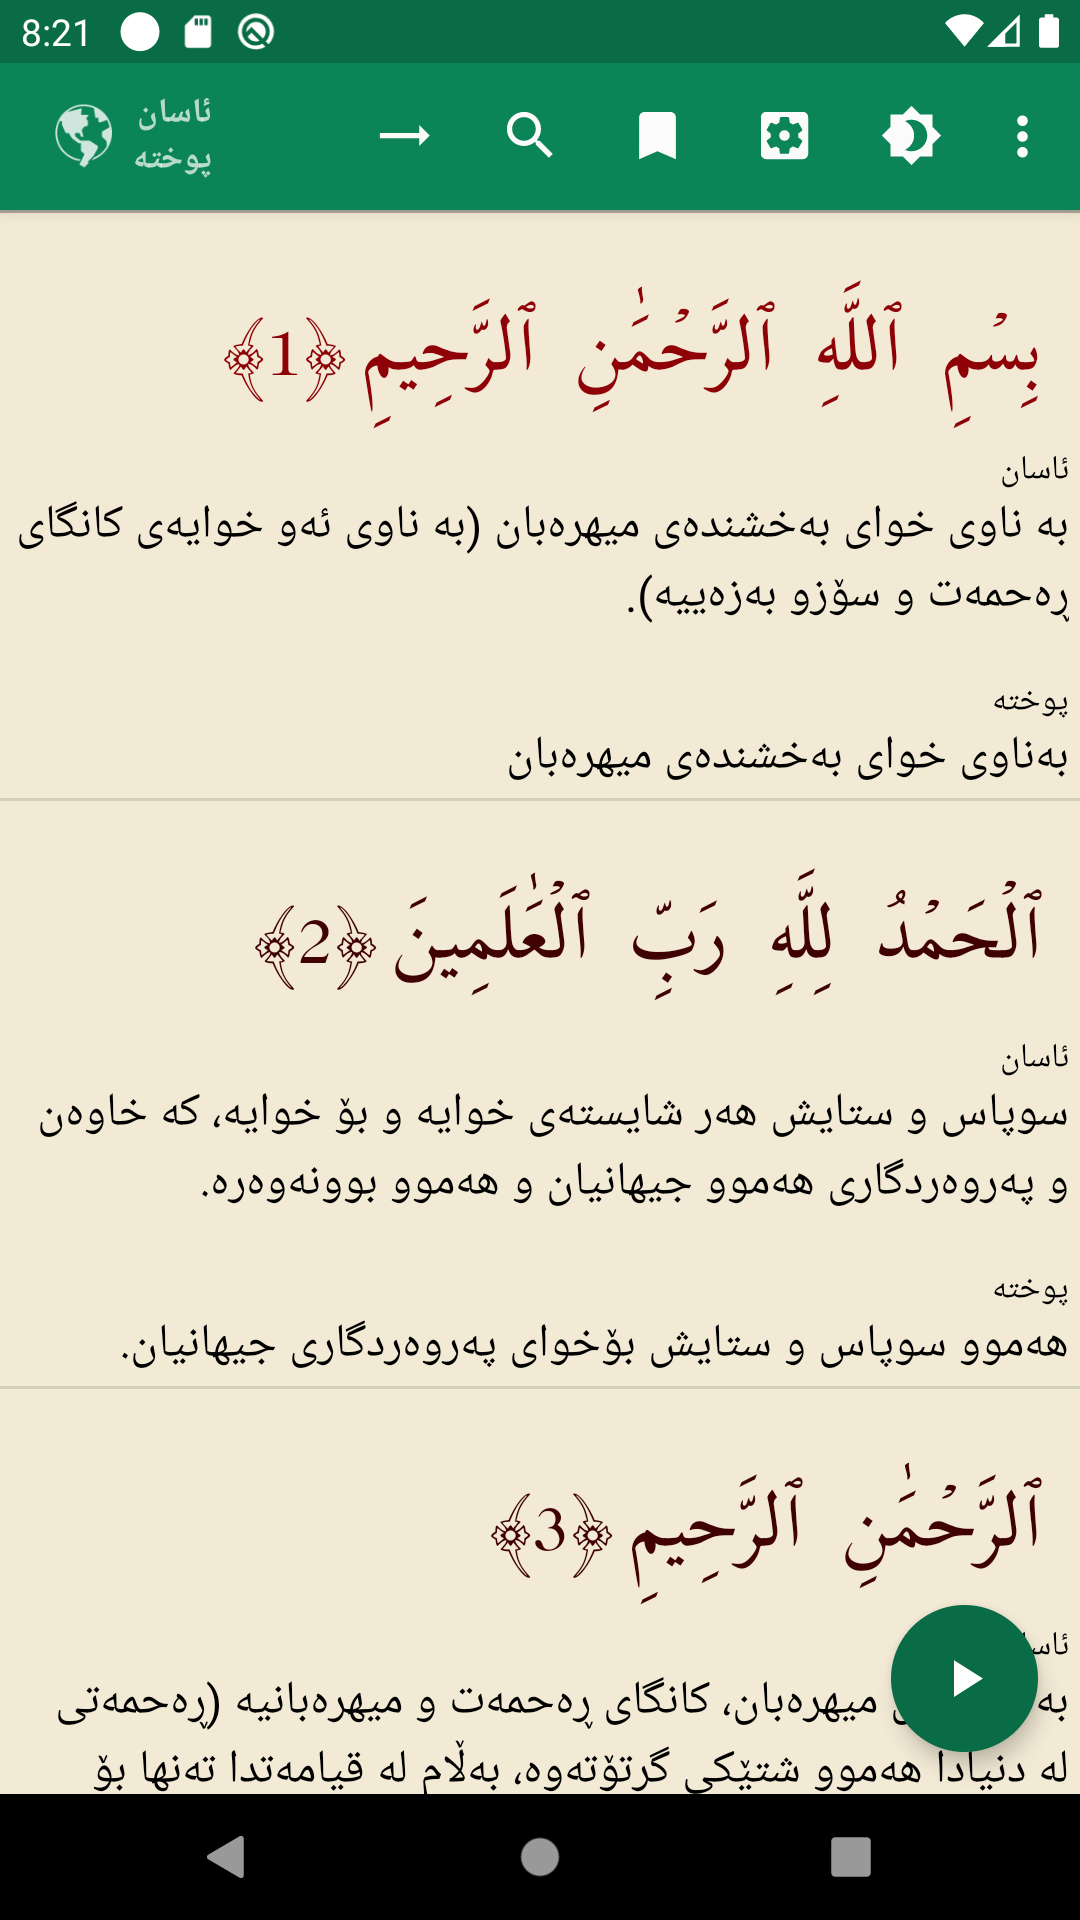 8:21
ئاسان
پوختە
بِسۡمِ ٱللَّهِ ٱلرَّحۡمَٰنِ ٱلرَّحِيمِ ﴿1﴾
ئاسان
بە ناوی خوای بەخشندەی میهرەبان (بە ناوی ئەو خوایەی کانگای
ڕەحمەت و سۆزو بەزەییە).
پوختە
بەناوی خوای بەخشندەی میهرەبان
ٱلۡحَمۡدُ لِلَّهِ رَبِّ ٱلۡعَٰلَمِينَ ﴿2﴾
ئاسان
سوپاس و ستایش هەر شایستەی خوایە و بۆ خوایە، کە خاوەن
و پەروەردگاری هەموو جیهانیان و هەموو بوونەوەرە.
پوختە
هەموو سوپاس و ستایش بۆخوای پەروەردگاری جیهانیان.
ٱلرَّحۡمَٰنِ ٱلرَّحِيمِ ﴿3﴾
میهرەبان، کانگای ڕەحمەت و میهرەبانیە (ڕەحمەتی
لە دنیادا هەموو شتێکی گرتۆتەوە، بەڵام لە قیامەتدا تەنها بۆ